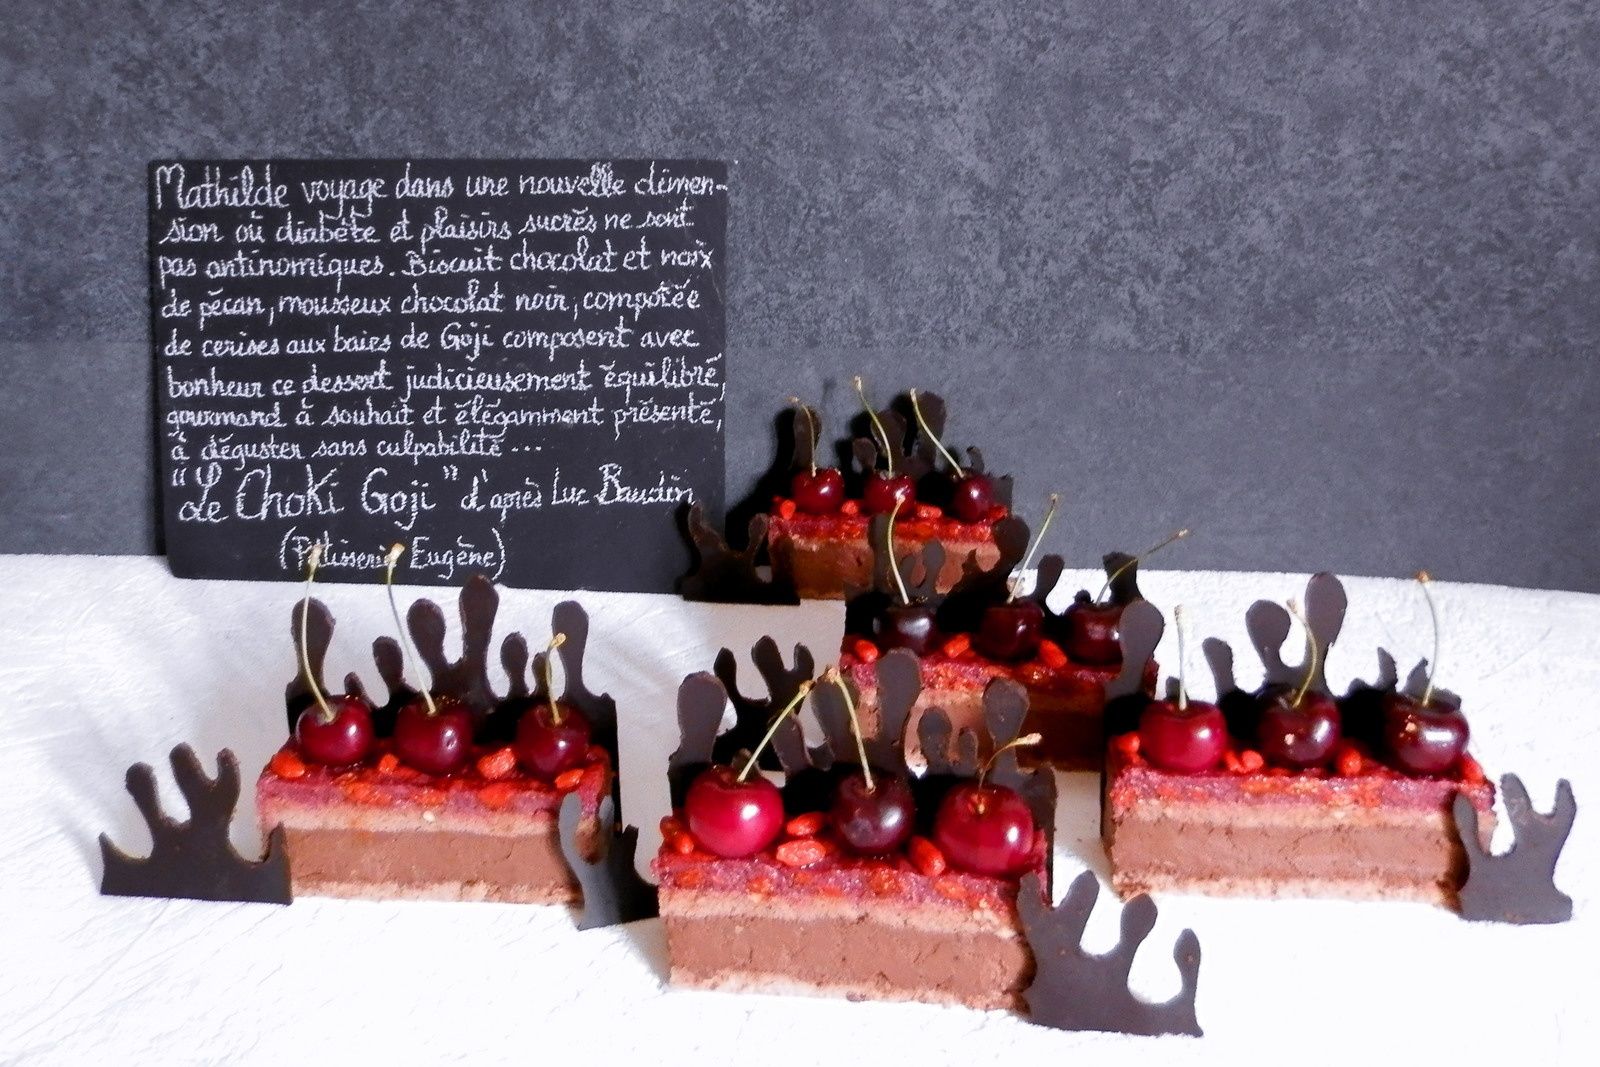 Mathilde voyage dans une nouvelle dimen-
sion où diabète et plaisirs sucrés ne sont
pas antinomiques. Biscuit chocolat et noix
de pécan, mousseux chocolat noir, compotée
de cerises aux baies de Goji composent avec
bonheur ce dessert judicieusement équilibré,
gourmand à souhait et élégamment présenté,
à déguster sans culpabilité...
"Le Choki Goji" d'après Luc Baudin
(Pâtisserie Eugène)